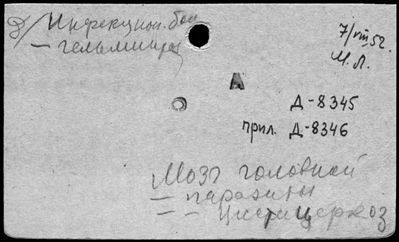 д/ Инфекцион. бол
— гельминтоз
7/VIII 52.
М. Л.
А
Д-8345
прил. Д-8346
Мозг головной
— паразиты
— — цистицеркоз